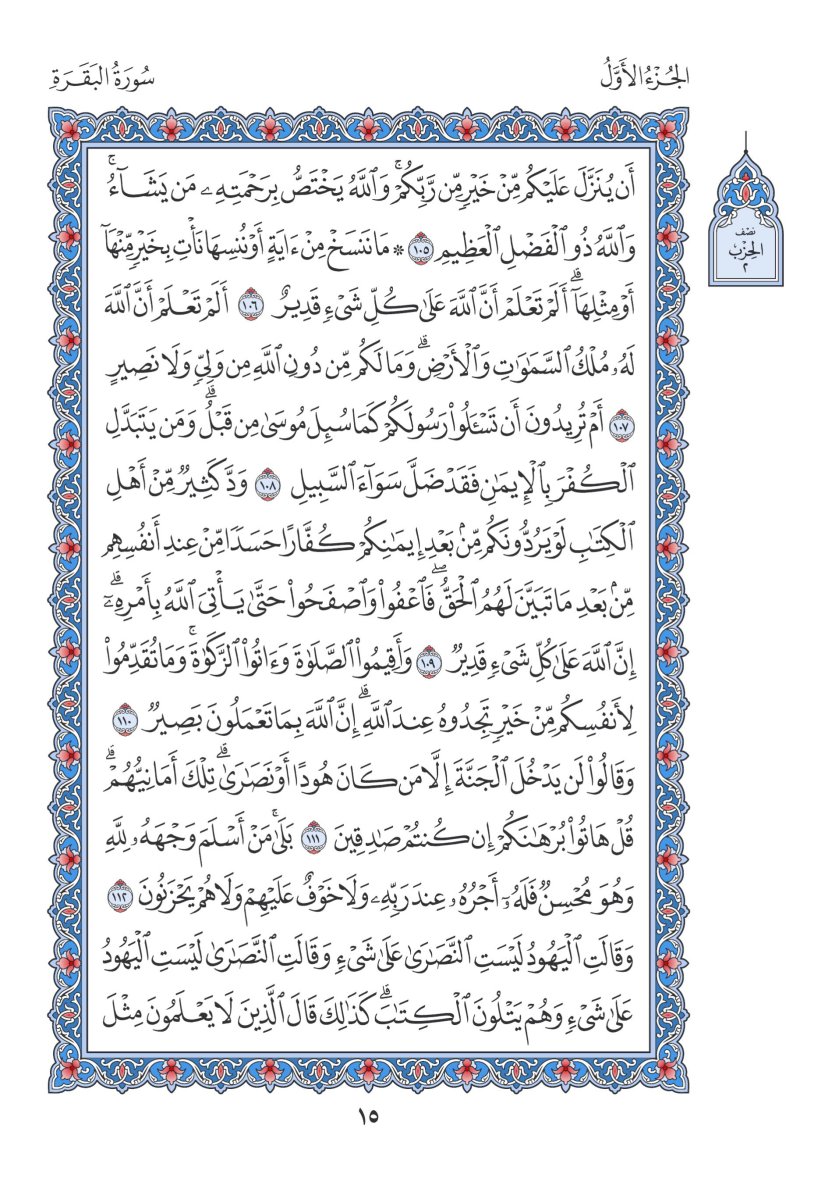 الجُزْءُ الأَوَّلُ
سُورَةُ البَقَرَةِ
أَن يُنَزَّلَ عَلَيْكُم مِّنْ خَيْرٍ مِّن رَّبِّكُمْۚ وَٱللَّهُ يَخْتَصُّ بِرَحْمَتِهِۦ مَن يَشَآءُۚ
وَٱللَّهُ ذُو ٱلْفَضْلِ ٱلْعَظِيمِ ١٠٥ * مَا نَنسَخْ مِنْ ءَايَةٍ أَوْ نُنسِهَا نَأْتِ بِخَيْرٍ مِّنْهَآ
أَوْ مِثْلِهَآۗ أَلَمْ تَعْلَمْ أَنَّ ٱللَّهَ عَلَىٰ كُلِّ شَىْءٍ قَدِيرٌ ١٠٦ أَلَمْ تَعْلَمْ أَنَّ ٱللَّهَ
لَهُۥ مُلْكُ ٱلسَّمَٰوَٰتِ وَٱلْأَرْضِۗ وَمَا لَكُم مِّن دُونِ ٱللَّهِ مِن وَلِىٍّ وَلَا نَصِيرٍ
١٠٧ أَمْ تُرِيدُونَ أَن تَسْـَٔلُوا۟ رَسُولَكُمْ كَمَا سُئِلَ مُوسَىٰ مِن قَبْلُۗ وَمَن يَتَبَدَّلِ
ٱلْكُفْرَ بِٱلْإِيمَٰنِ فَقَدْ ضَلَّ سَوَآءَ ٱلسَّبِيلِ ١٠٨ وَدَّ كَثِيرٌ مِّنْ أَهْلِ
ٱلْكِتَٰبِ لَوْ يَرُدُّونَكُم مِّنۢ بَعْدِ إِيمَٰنِكُمْ كُفَّارًا حَسَدًا مِّنْ عِندِ أَنفُسِهِم
مِّنۢ بَعْدِ مَا تَبَيَّنَ لَهُمُ ٱلْحَقُّۖ فَٱعْفُوا۟ وَٱصْفَحُوا۟ حَتَّىٰ يَأْتِىَ ٱللَّهُ بِأَمْرِهِۦٓۗ
إِنَّ ٱللَّهَ عَلَىٰ كُلِّ شَىْءٍ قَدِيرٌ ١٠٩ وَأَقِيمُوا۟ ٱلصَّلَوٰةَ وَءَاتُوا۟ ٱلزَّكَوٰةَۚ وَمَا تُقَدِّمُوا۟
لِأَنفُسِكُم مِّنْ خَيْرٍ تَجِدُوهُ عِندَ ٱللَّهِۗ إِنَّ ٱللَّهَ بِمَا تَعْمَلُونَ بَصِيرٌ ١١٠
وَقَالُوا۟ لَن يَدْخُلَ ٱلْجَنَّةَ إِلَّا مَن كَانَ هُودًا أَوْ نَصَٰرَىٰۗ تِلْكَ أَمَانِيُّهُمْۗ
قُلْ هَاتُوا۟ بُرْهَٰنَكُمْ إِن كُنتُمْ صَٰدِقِينَ ١١١ بَلَىٰۚ مَنْ أَسْلَمَ وَجْهَهُۥ لِلَّهِ
وَهُوَ مُحْسِنٌ فَلَهُۥٓ أَجْرُهُۥ عِندَ رَبِّهِۦ وَلَا خَوْفٌ عَلَيْهِمْ وَلَا هُمْ يَحْزَنُونَ ١١٢
وَقَالَتِ ٱلْيَهُودُ لَيْسَتِ ٱلنَّصَٰرَىٰ عَلَىٰ شَىْءٍ وَقَالَتِ ٱلنَّصَٰرَىٰ لَيْسَتِ ٱلْيَهُودُ
عَلَىٰ شَىْءٍ وَهُمْ يَتْلُونَ ٱلْكِتَٰبَۗ كَذَٰلِكَ قَالَ ٱلَّذِينَ لَا يَعْلَمُونَ مِثْلَ
نصف
الحزب
٢
١٥